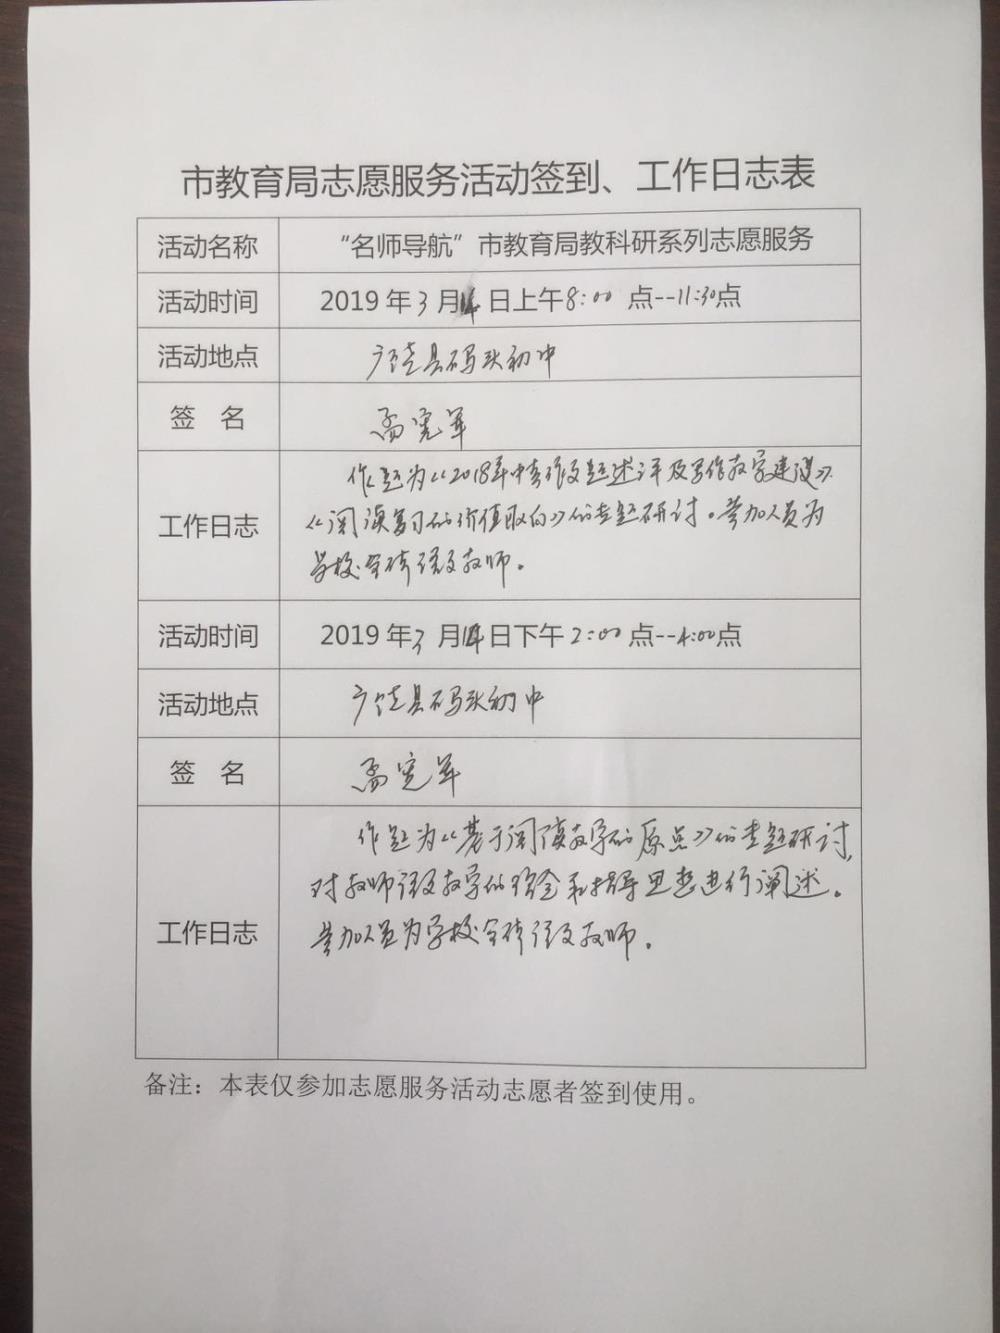 市教育局志愿服务活动签到、工作日志表
活动名称 “名师导航”市教育局教科研系列志愿服务
活动时间 2019年3月14日上午8:00点--11:30点
活动地点 广饶县码头初中
签 名 孟宪军
作题为《2018年中考作文题述评及写作教学建议》、
工作日志 《阅读复习的价值取向》的专题研讨。参加人员为
学校全体语文教师。
活动时间 2019年3月14日下午2:00点--4:00点
活动地点 广饶县码头初中
签 名 孟宪军
作题为《基于阅读教学的原点》的专题研讨,
对教师语文教学的理念和指导思想进行阐述。
工作日志 参加人员为学校全体语文教师。
备注：本表仅参加志愿服务活动志愿者签到使用。